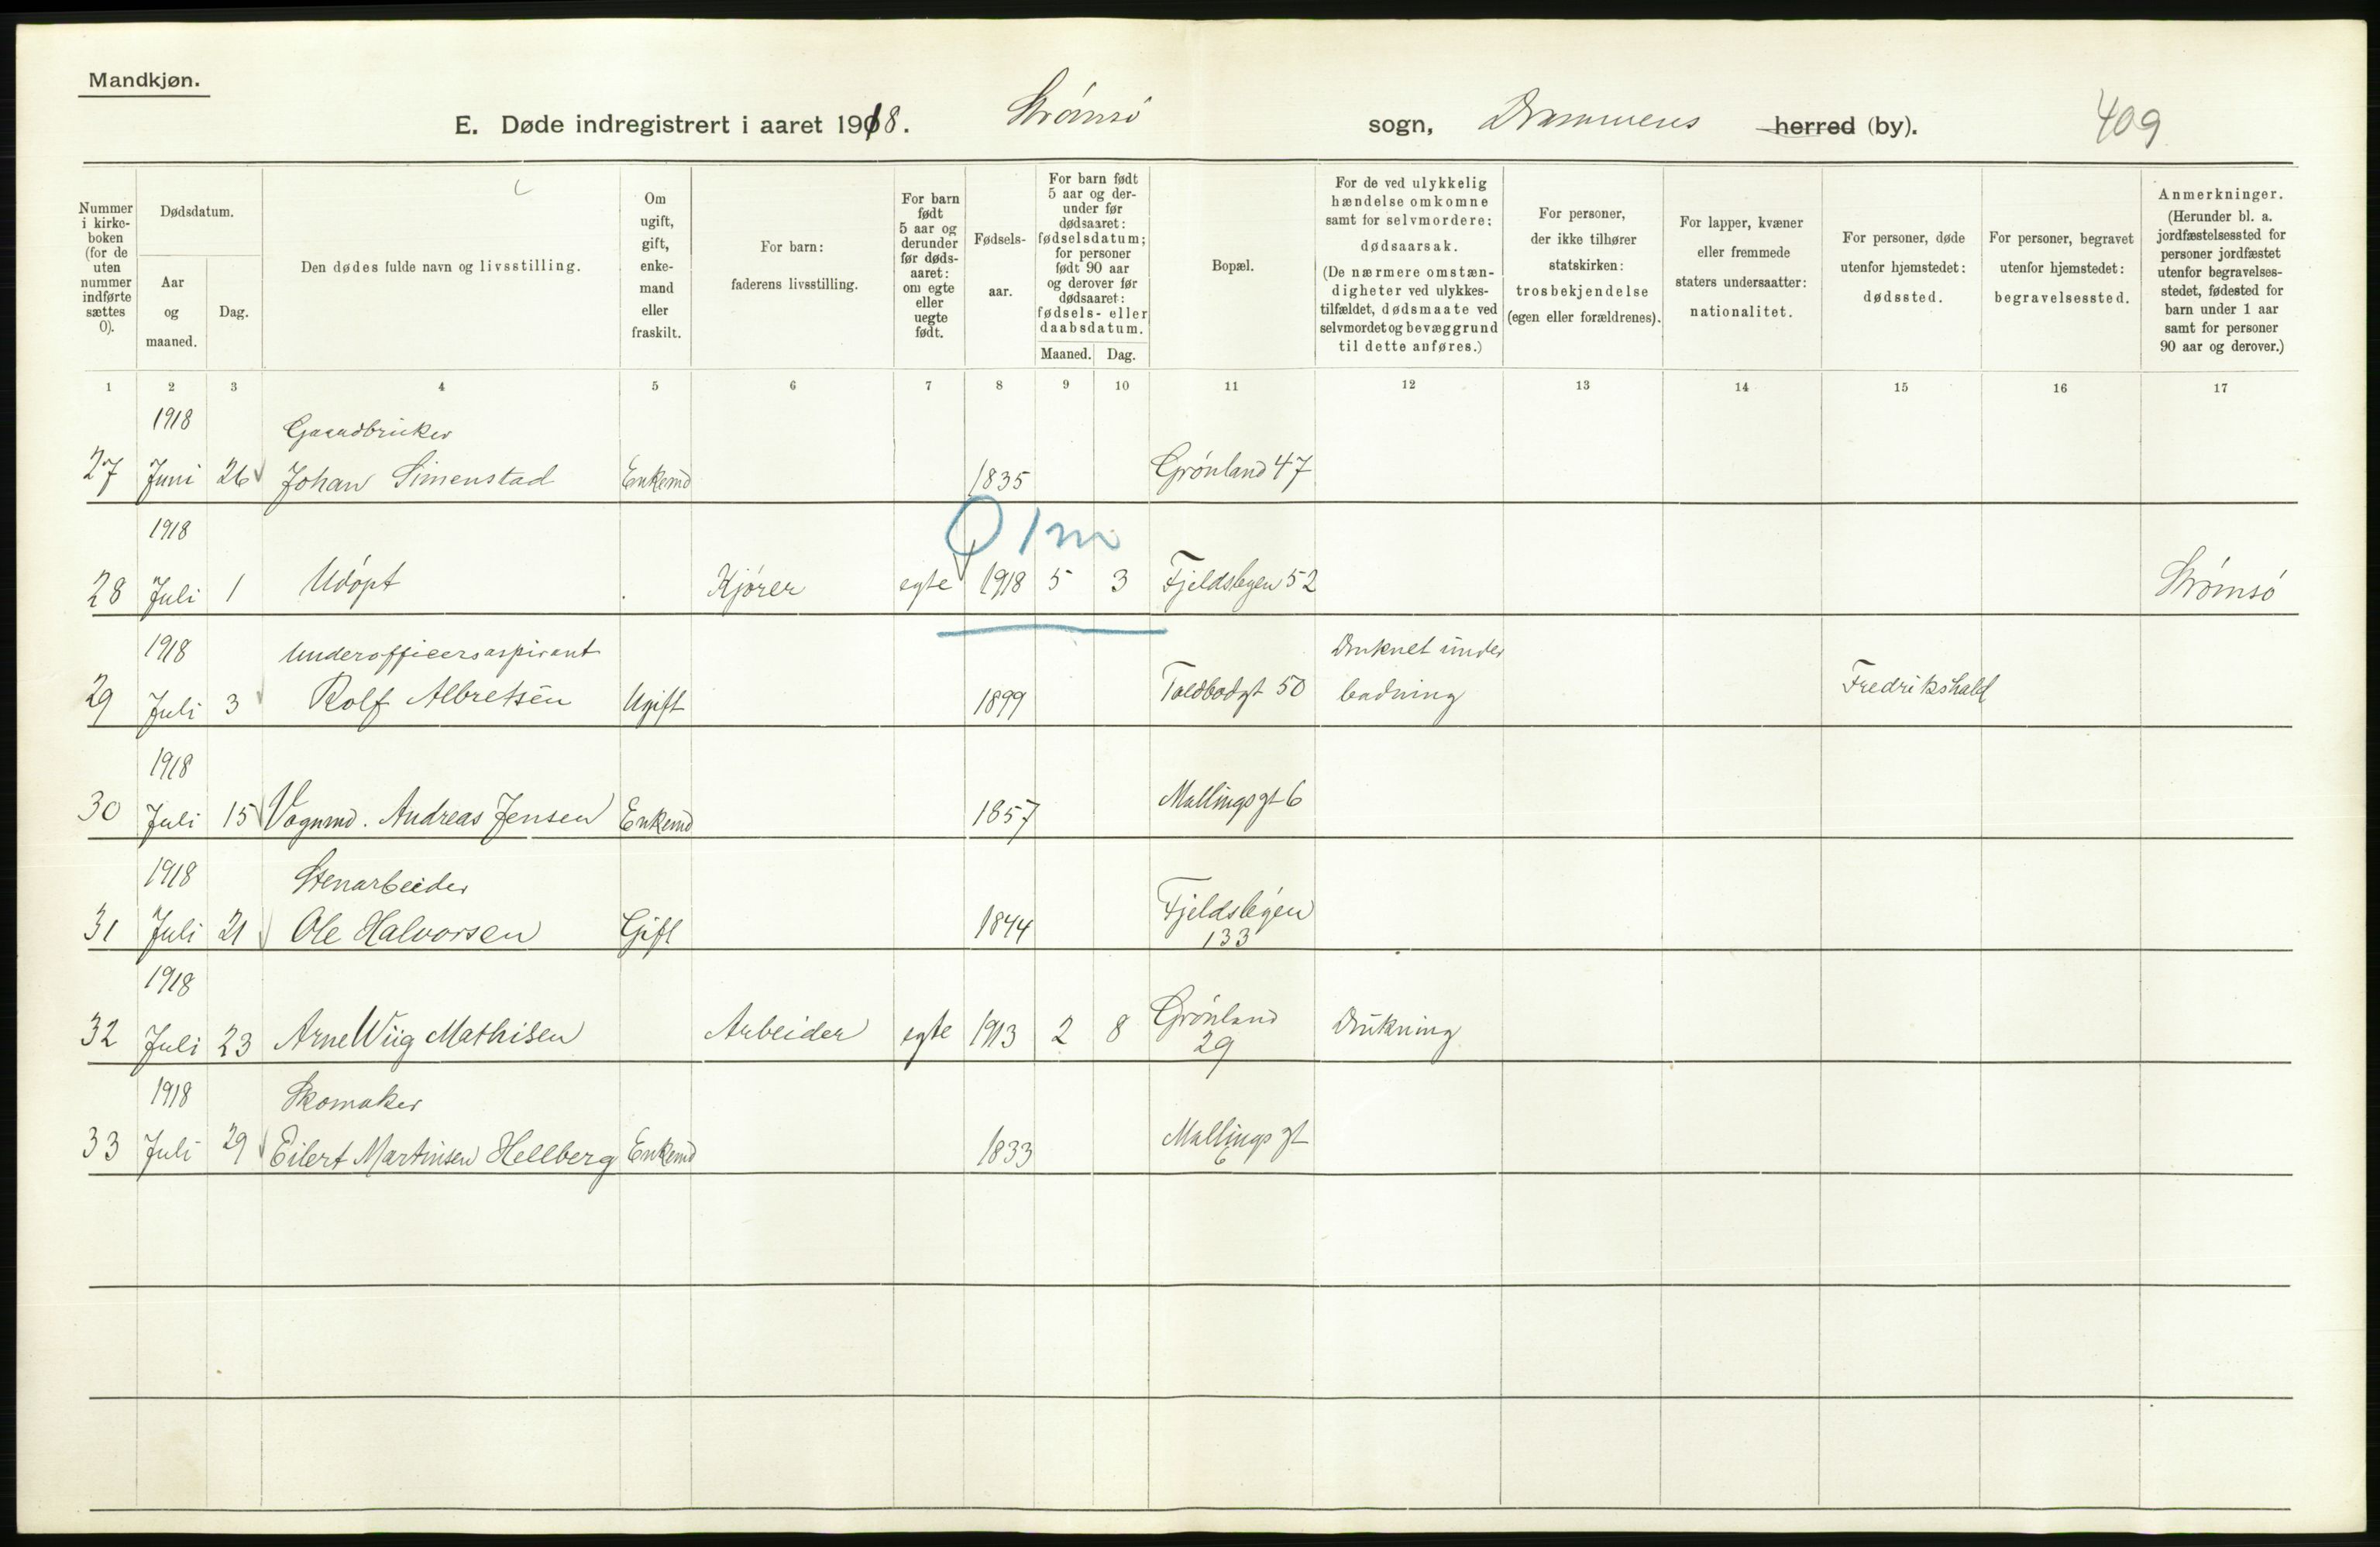 Mandkjøn.
E. Døde indregistrert i aaret 1918. Strømsø sogn, Drammens herred (by). 409
Nummer i kirkeboken (for de uten nummer indførte sættes 0).
Dødsdatum.
Aar og maaned.
Dag.
Den dødes fulde navn og livsstilling.
Om ugift, gift, enkemand eller fraskilt.
For barn: faderens livsstilling.
For barn født 5 aar og derunder før dødsaaret: om egte eller uegte født.
Fødselsaar.
For barn født 5 aar og derunder før dødsaaret: fødselsdatum; for personer født 90 aar og derover før dødsaaret: fødsels- eller daabsdatum.
Maaned. Dag.
Bopæl.
For de ved ulykkelig hændelse omkomne samt for selvmordere: dødsaarsak. (De nærmere omstændigheter ved ulykkestilfældet, dødsmaate ved selvmordet og bevæggrund til dette anføres.)
For personer, der ikke tilhører statskirken: trosbekjendelse (egen eller forældrenes).
For lapper, kvæner eller fremmede staters undersaatter: nationalitet.
For personer, døde utenfor hjemstedet: dødssted.
For personer, begravet utenfor hjemstedet: begravelsessted.
Anmerkninger. (Herunder bl. a. jordfæstelsessted for personer jordfæstet utenfor begravelsesstedet, fødested for barn under 1 aar samt for personer 90 aar og derover.)
1 2 3 4 5 6 7 8 9 10 11 12 13 14 15 16 17
1918 Gaardbruker
27 Juni 26 Johan Simenstad Enkemd 1835 Grønland 47
0 1 m
1918
28 Juli 1 Udøpt Kjører egte 1918 5 3 Fjeldsbyen 52 Strømsø
1918 Underofficersaspirant Druknet under
29 Juli 3 Rolf Albretsen Ugift 1899 Toldbodgt 50 badning Fredrikshald
1918
30 Juli 15 Vognmd. Andreas Jensen Enkemd 1857 Mallingsgt 6
1918 Stenarbeider
31 Juli 21 Ole Halvorsen Gift 1844 Fjeldsbyen 133
1918
32 Juli 23 Arne Wiig Mathisen Arbeider egte 1913 2 8 Grønland 29 Drukning
1918 Skomaker
33 Juli 29 Eilert Martinsen Hellberg Enkemd 1833 Mallings gt 6